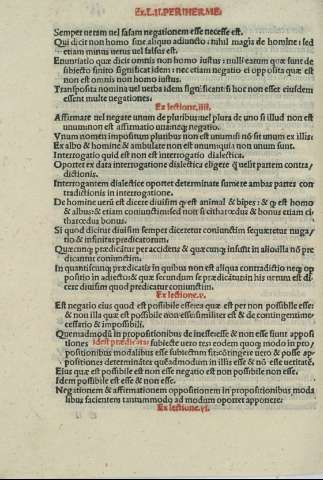 Ex.L.II.PERIHERME.
Semper ueram uel falsam negationem esse necesse est.
Qui dicit non homo sine aliquo adiuncto: nihil magis de homine: sed
etiam minus uerus uel falsus est.
Enunciatio quæ dicit omnis non homo iustus: nulli earum quæ sunt de
subiecto finito significat idem: nec etiam negatio ei opposita quæ est
non est omnis non homo iustus.
Transposita nomina uel uerba idem significant: si hoc non esset eiusdem
essent multe negationes.
Ex lectione.iiii.
Affirmare uel negare unum de pluribus: uel plura de uno si illud non est
unum: non est affirmatio una: neq; negatio.
Vnum nomen impositum pluribus non est unum: si nō sit unum ex illis:
Ex albo & homine & ambulare non est unum: quia non unum sunt.
Interrogatio quid est non est interrogatio dialectica.
Oportet ex data interrogatione dialectica eligere q̄ uelit partem contra/
dictionis.
Interrogantem dialectice oportet determinate sumere ambas partes con
tradictionis in interrogatione.
De homine ueru est dicere diuisim q est animal & bipes: & q est homo
& albus: & etiam coniunctim: sed non si citharœdus & bonus etiam ci
tharœdus bonus.
Si quod dicitur diuisim semper diceretur coniunctim sequeretur nuga/
tio & infinitas prædicatorum.
Quæcunq prædicatur per accidens & quæcunq insunt in alio: illa nō præ
dicantur coniunctim.
In quantiscunq prædicatis in quibus non est aliqua contradictio neq op
positio in adiecto: & quæ secundum se prædicātur: in his uerum est di
cere diuisim quod prædicatur coniunctim.
Ex lectione.v.
Est negatio eius quod est possibile esse: ea quæ est per non possibile esse:
& non illa quæ est possibile non esse: similiter est & de contingenti: ne
cessario & impossibili.
Quemadmodū in propositionibus de inesse: esse & non esse sunt apposi
tiones idest prædicata: subiecte uero res: eodem quoq modo in pro/
positionibus modalibus esse subiectum fit: cōtingere uero & posse ap
positiones: determinātes quēadmodum in illis esse & nō esse ueritatē.
Eius quæ est possibile est non esse negatio est non possibile non esse.
Idem possibile est esse & non esse.
Negationem & affirmationem oppositionem in propositionibus moda
libus facientem tantummodo ad modum oportet apponere:
Ex lectione.vi.